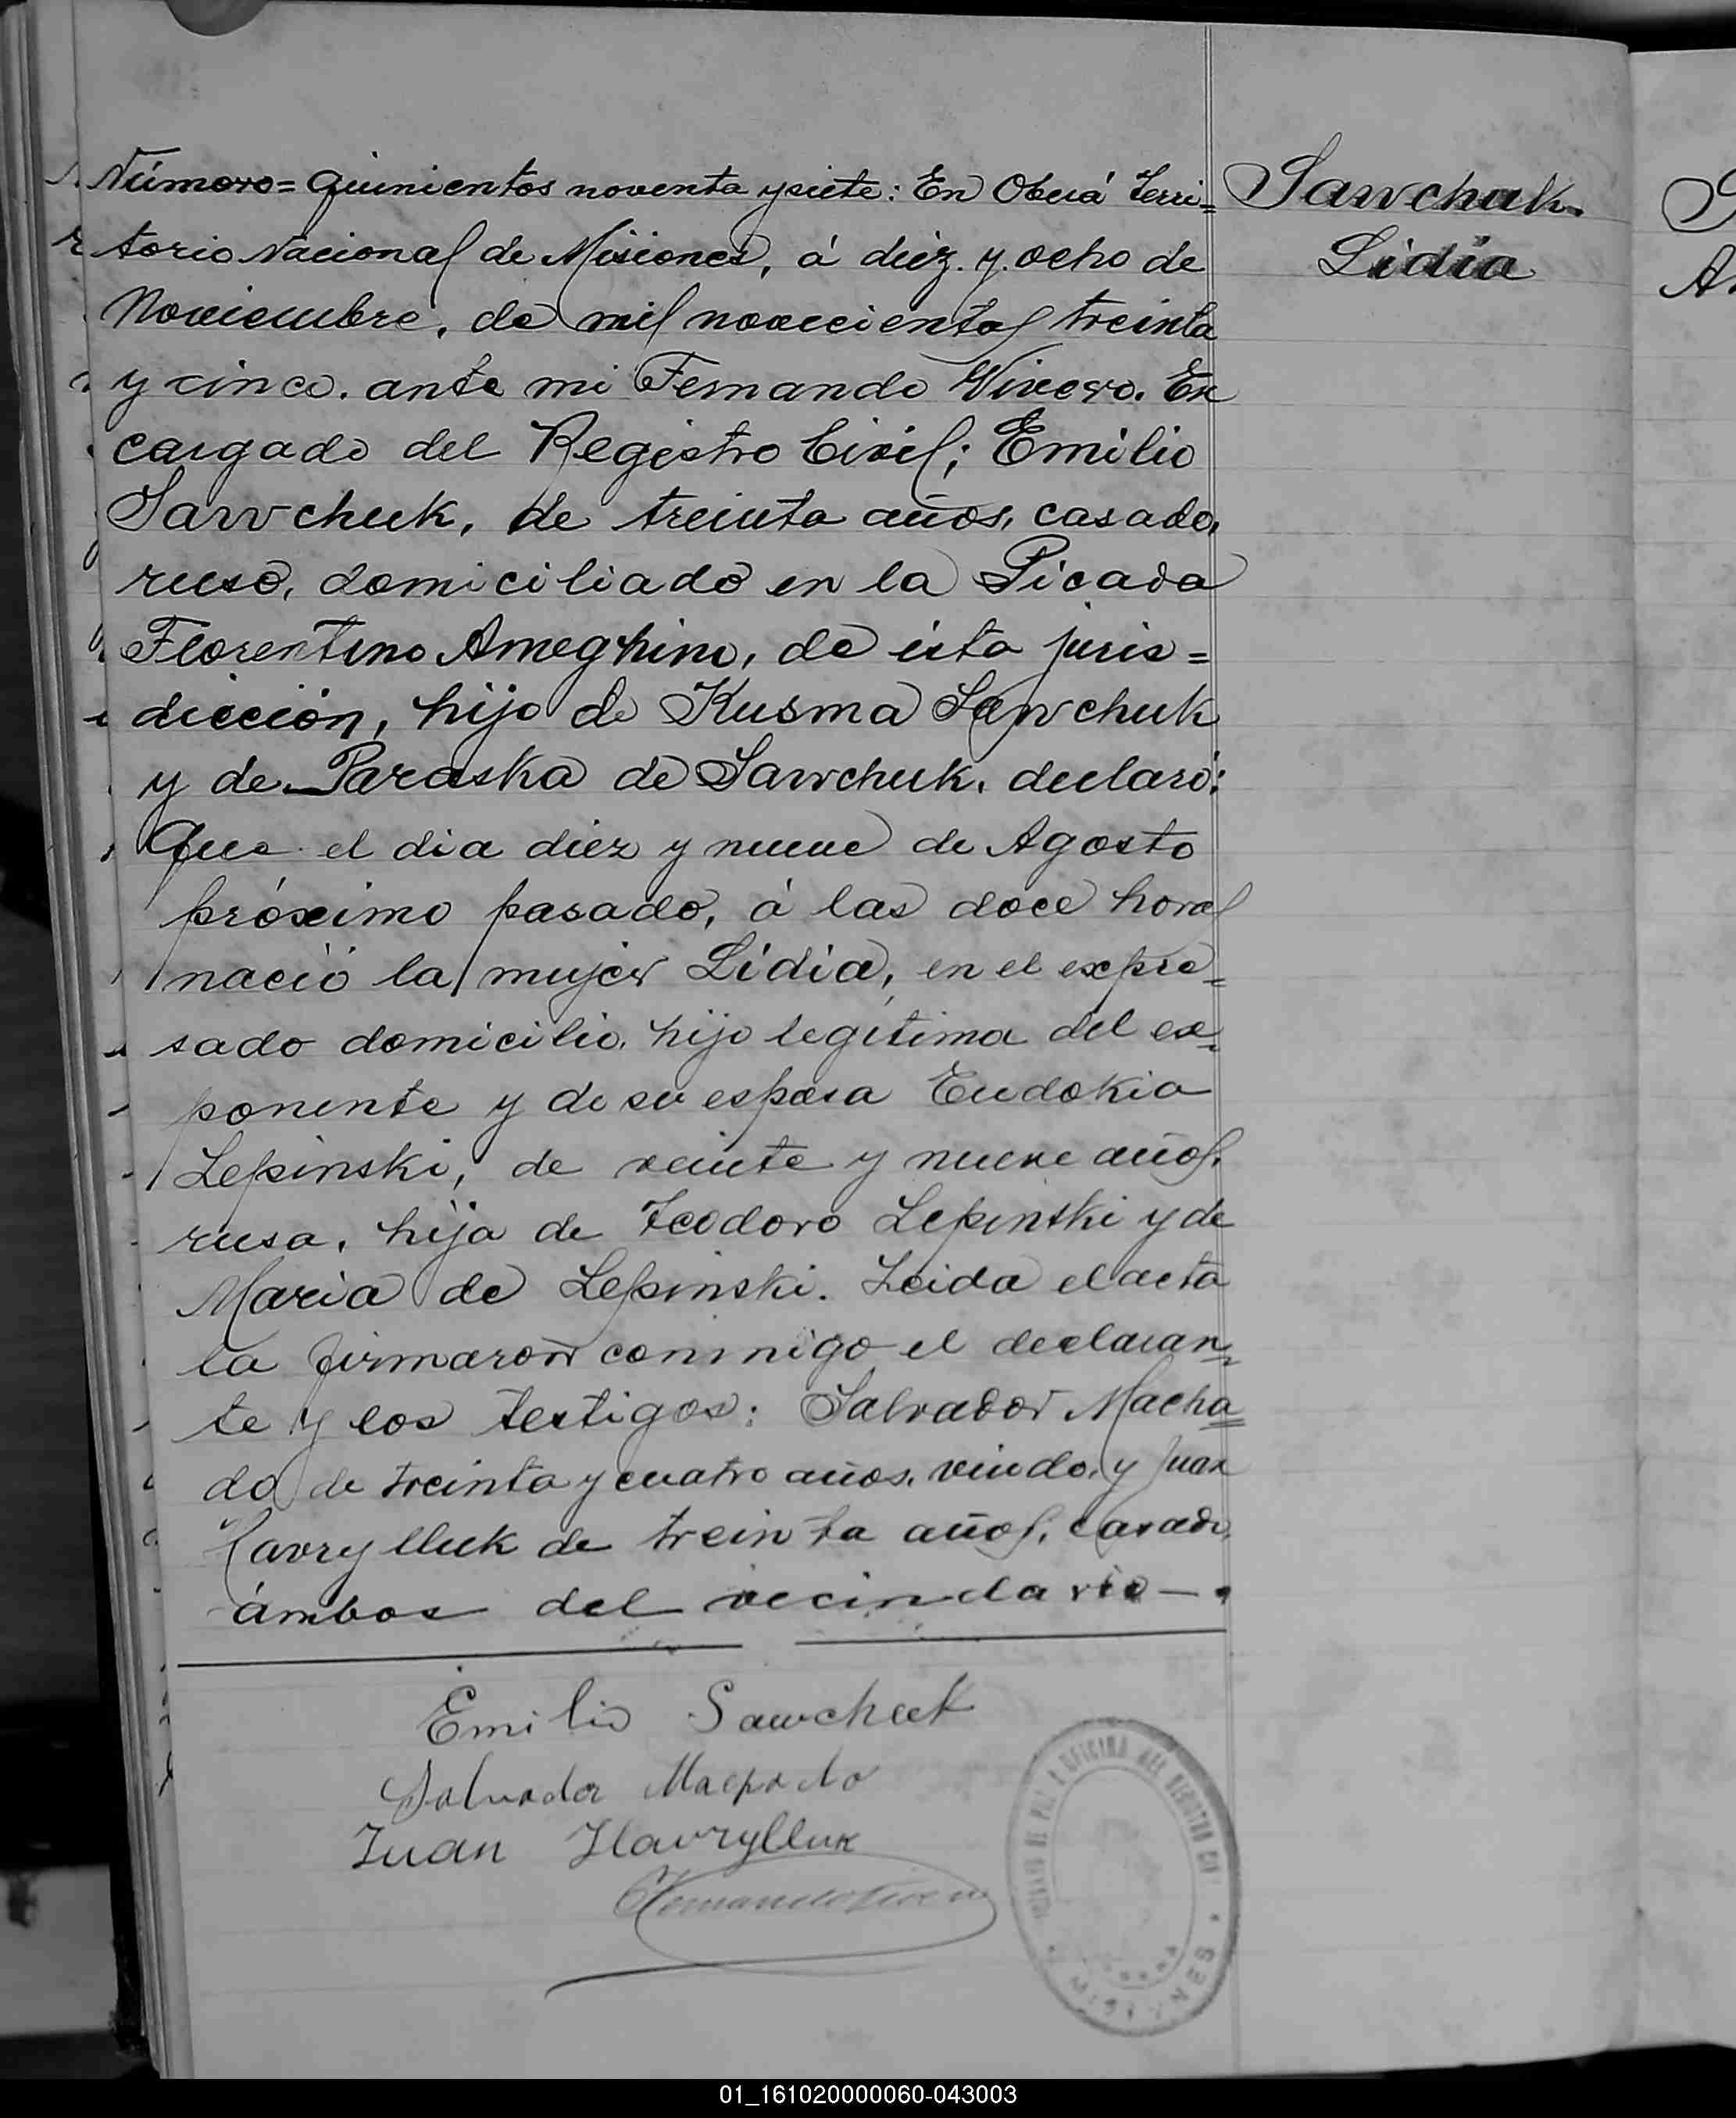 Número= Quinientos noventa y siete: En Oberá Terri=
torio Nacional de Misiones, á diez. y. ocho de
Noviembre, de mil novecientos treinta
y cinco. ante mi Fernando Vivero. En
cargado del Registro Civil; Emilio
Sawchuk, de treinta años, casado,
ruso, domiciliado en la Picada
Florentino Ameghino, de ésta juris=
dicción, hijo de Kusma Sawchuk
y de Paraska de Sawchuk. declaró:
Que el dia diez y nueve de Agosto
próximo pasado, á las doce horas
nació la mujer Lidia, en el expre=
sado domicilio, hijo legítima del ex=
ponente y de su esposa Eudokia
Lepinski, de veinte y nueve años,
rusa, hija de Teodoro Lepinski y de
Maria de Lepinski. Leida el acta
la firmaron conmigo el declaran=
te y los testigos: Salvador Macha=
do de treinta y cuatro años, viudo, y Juan
Havrylluk de treinta años, casado,
ámbos del vecindario—.
Sawchuk.
Lidia
Emilio Sawchuk
Salvador Machado
Juan Havrylluk
Fernando Vivero
OFICINA DEL REGISTRO CIVIL
MISIONES
01_161020000060-043003